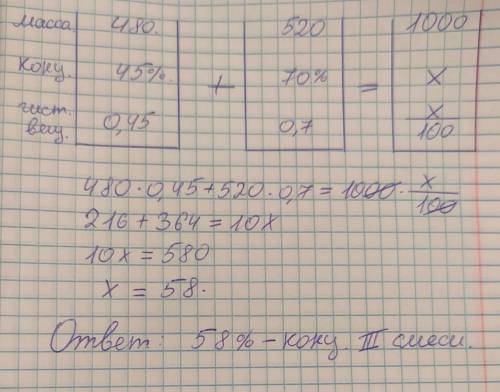 масса 480. 520 1000
конц. 45% + 70% = x
чист. вещ. 0,45 0,7 x/100
480·0,45+520·0,7=1000·x/100
216+364=10x
10x=580
x=58.
Ответ: 58%-конц. III смеси.